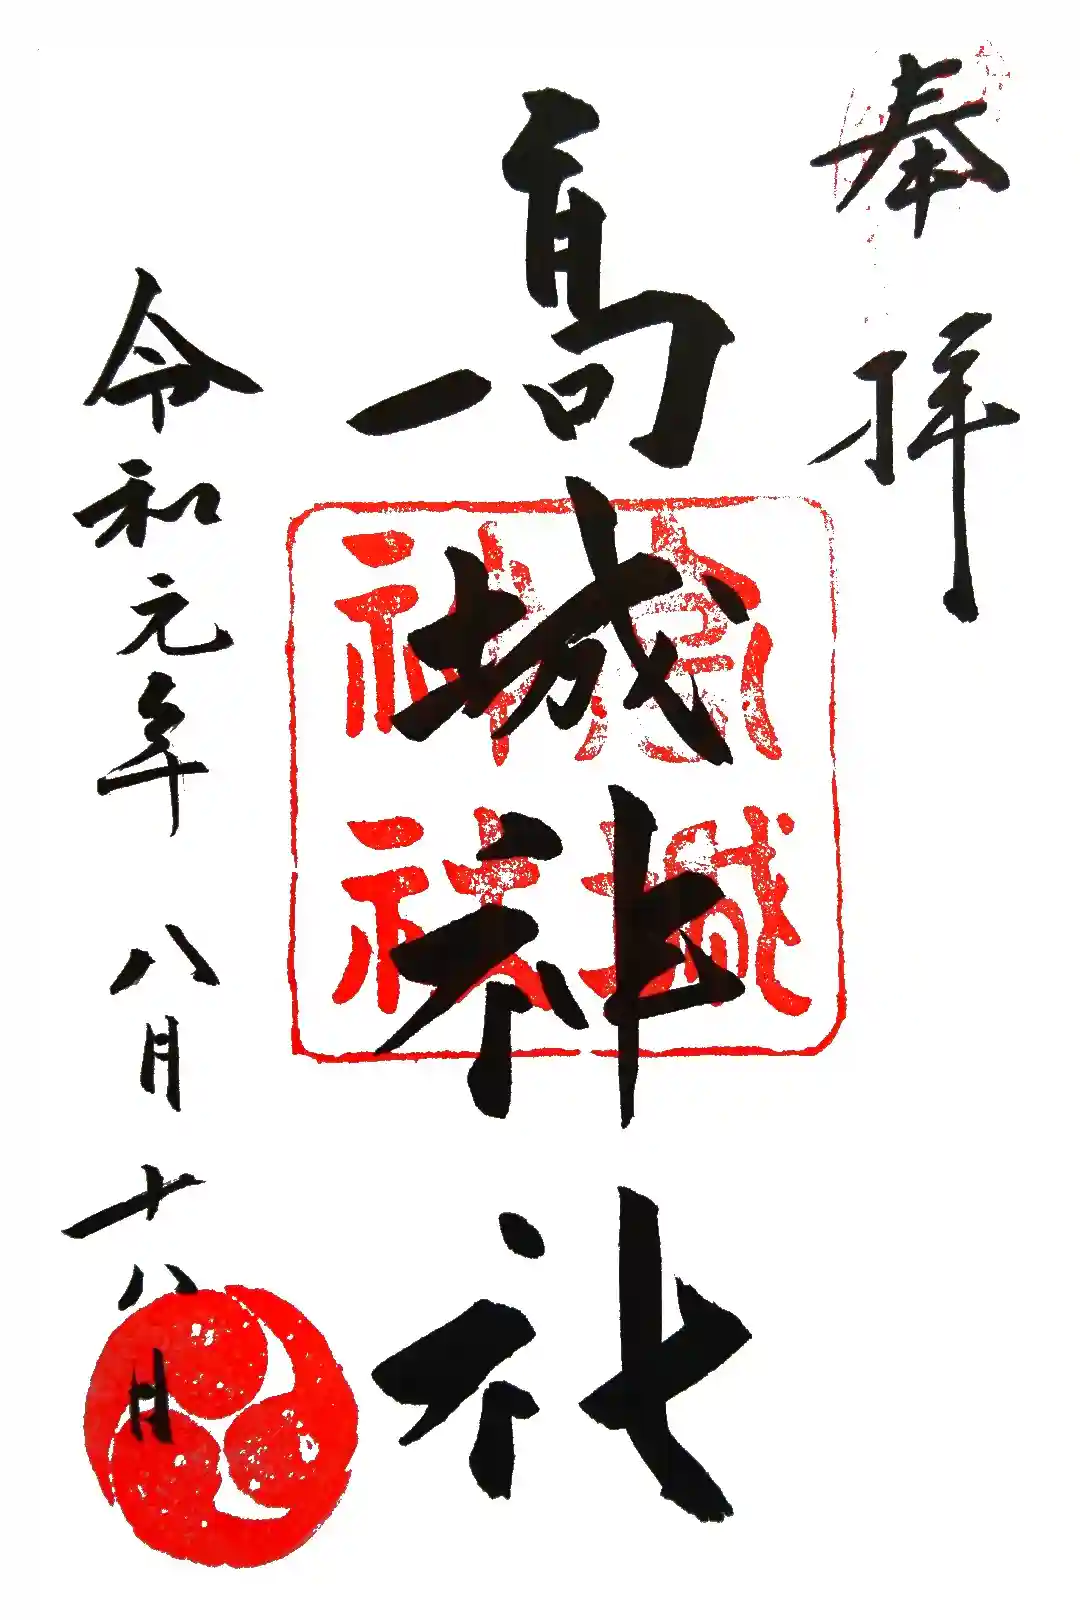 奉拝
高城神社
高城神社
令和元年八月十八日